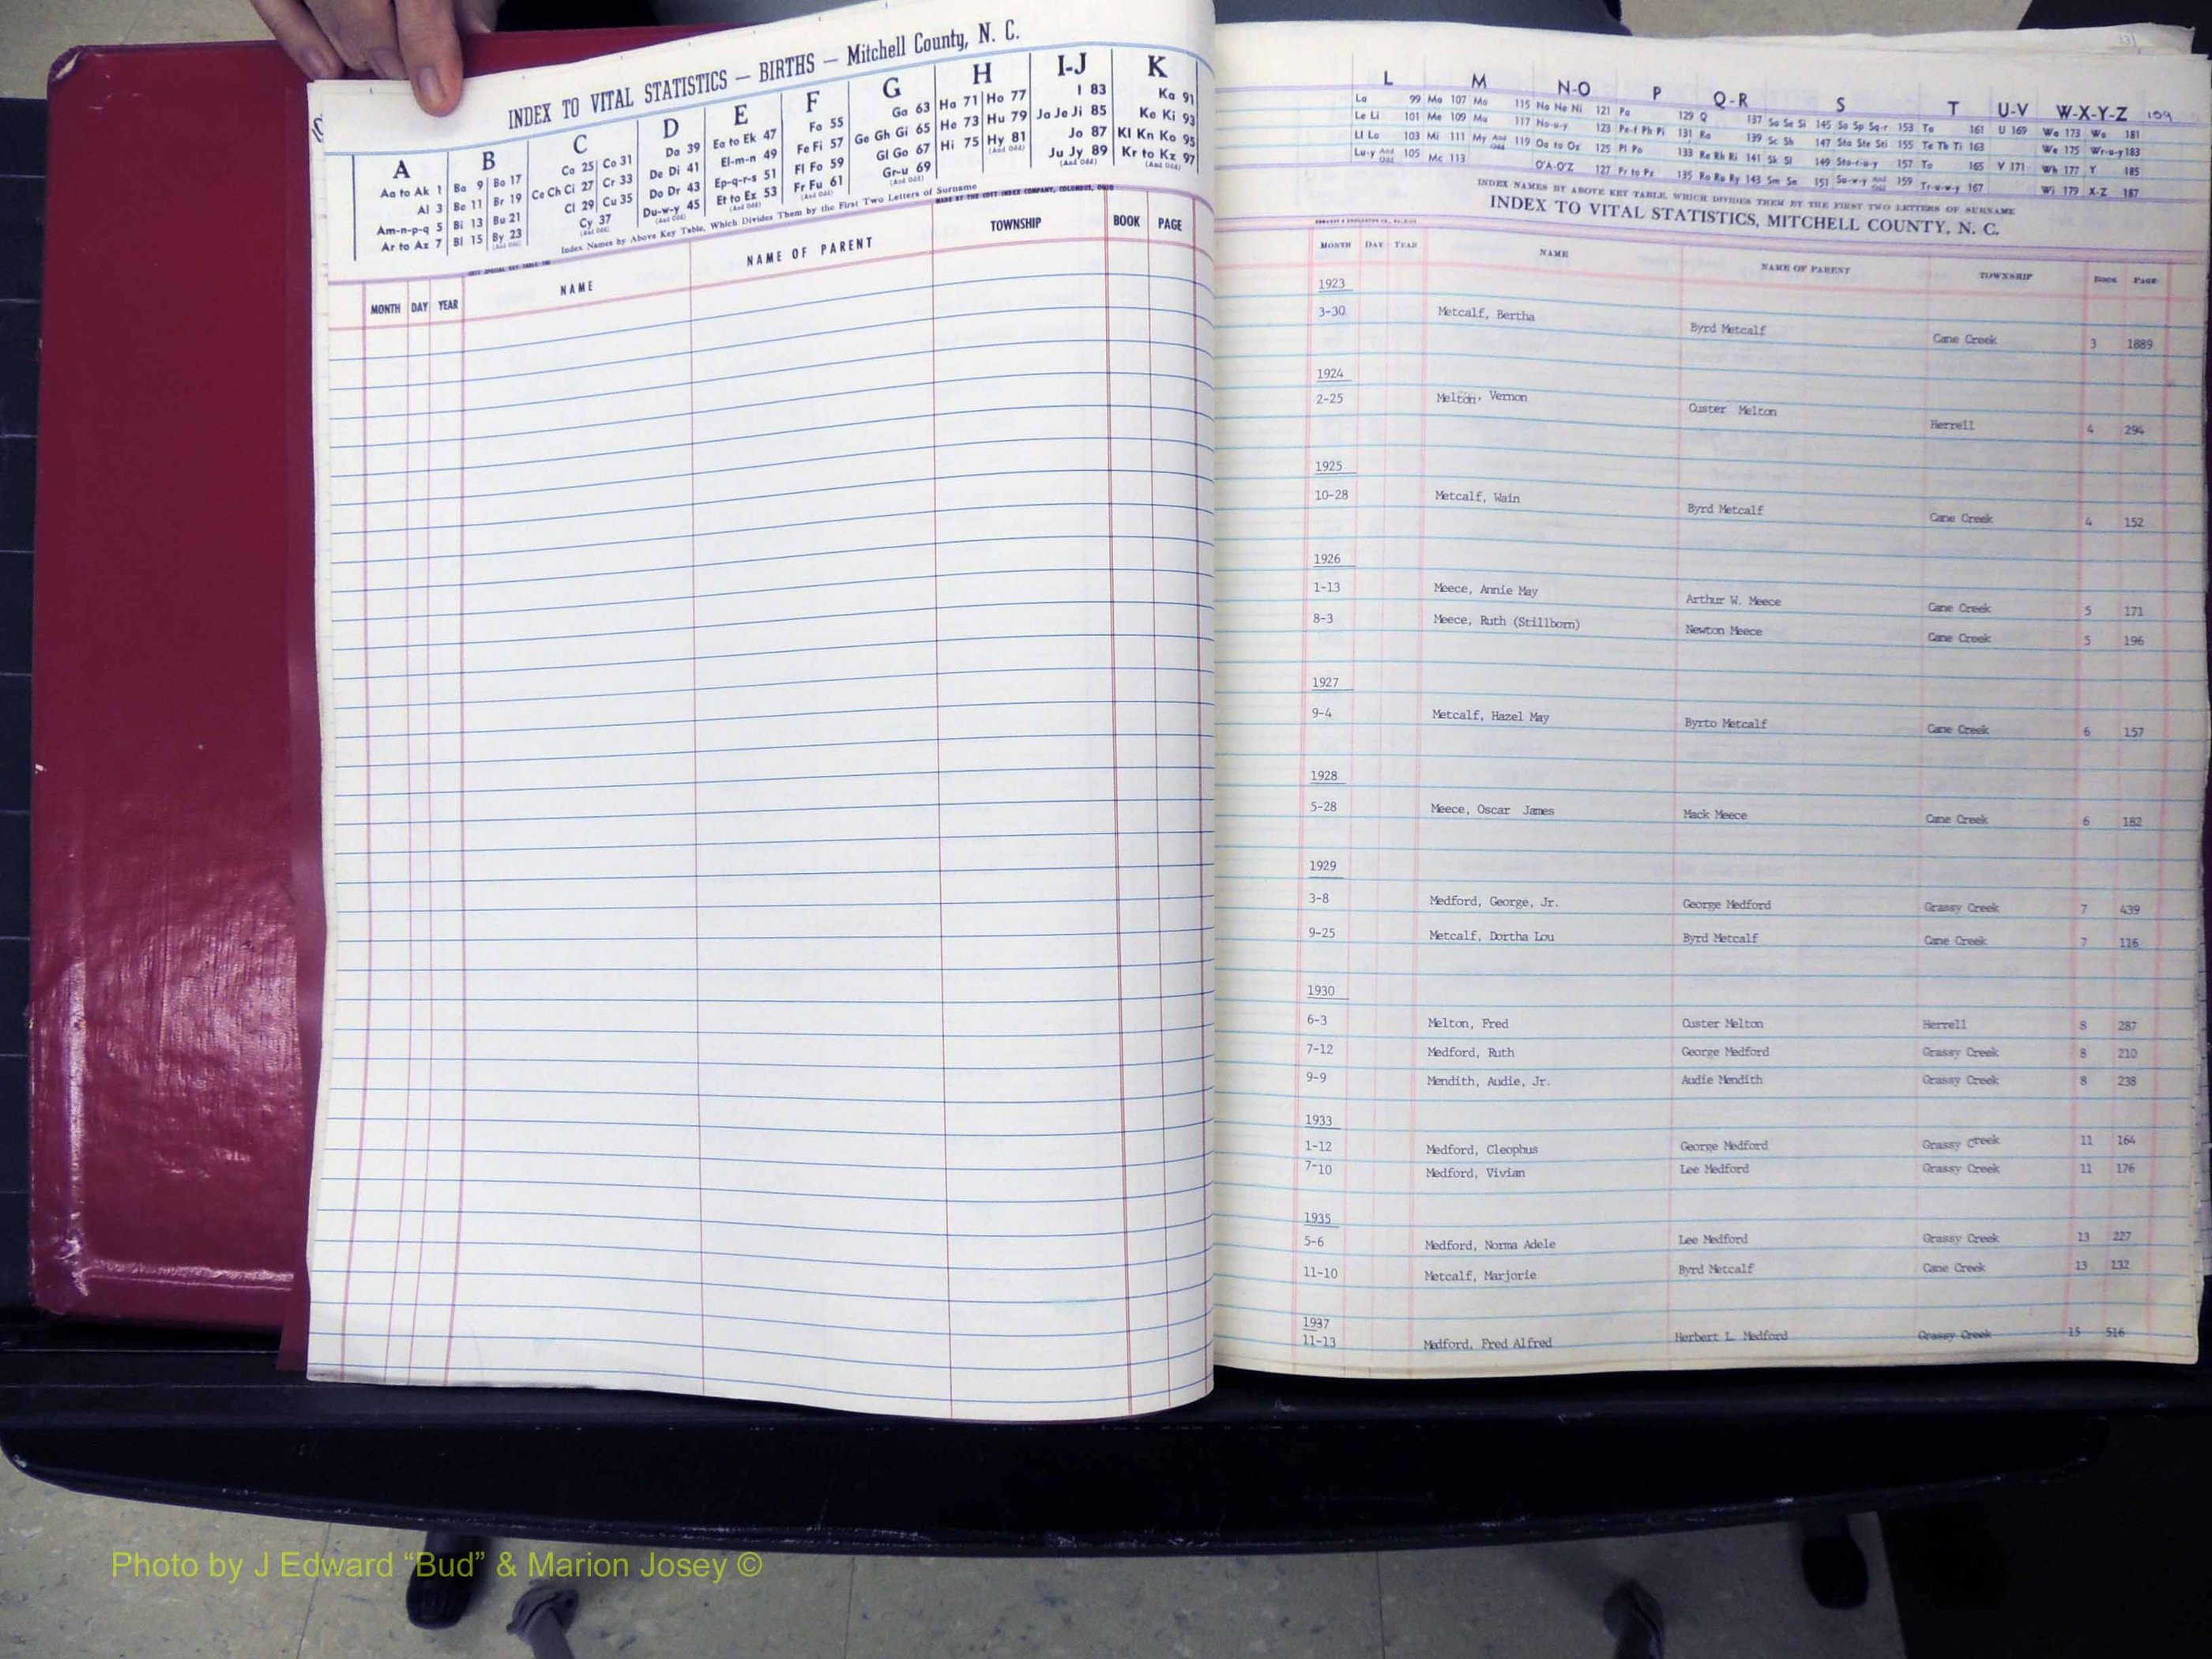 INDEX TO VITAL STATISTICS — BIRTHS — Mitchell County, N. C.
A B C D E F G H I-J K
Aa to Ak 1 Ba 9 Bo 17 Ca 25 Co 31 Da 39 Ea to Ek 47 Fa 55 Ga 63 Ha 71 Ho 77 I 83 Ka 91
Al 3 Be 11 Br 19 Ce Ch Ci 27 Cr 33 De Di 41 El-m-n 49 Fe Fi 57 Ge Gh Gi 65 He 73 Hu 79 Ja Je Ji 85 Ke Ki 93
Am-n-p-q 5 Bi 13 Bu 21 Cl 29 Cu 35 Do Dr 43 Ep-q-r-s 51 Fl Fo 59 Gl Go 67 Hi 75 Hy 81 (And Odd) Jo 87 Kl Kn Ko 95
Ar to Az 7 Bl 15 By 23 (And Odd) Cy 37 (And Odd) Du-w-y 45 (And Odd) Et to Ez 53 (And Odd) Fr Fu 61 (And Odd) Gr-u 69 (And Odd) Ju Jy 89 (And Odd) Kr to Kz 97 (And Odd)
Index Names by Above Key Table, Which Divides Them by the First Two Letters of Surname
MADE BY THE COTT INDEX COMPANY, COLUMBUS, OHIO
MONTH DAY YEAR NAME NAME OF PARENT TOWNSHIP BOOK PAGE
L M N-O P Q-R S T U-V W-X-Y-Z 109
La 99 Ma 107 Mo 115 Na Ne Ni 121 Pa 129 Q 137 Sa Se Si 145 So Sp Sq-r 153 Ta 161 U 169 Wa 173 Wo 181
Le Li 101 Me 109 Mu 117 No-u-y 123 Pe-f Ph Pi 131 Ra 139 Sc Sh 147 Sta Ste Sti 155 Te Th Ti 163 We 175 Wr-u-y 183
Ll Lo 103 Mi 111 My And Odd 119 Oa to Oz 125 Pl Po 133 Re Rh Ri 141 Sk Sl 149 Sto-r-u-y 157 To 165 V 171 Wh 177 Y 185
Lu-y And Odd 105 Mc 113 O'A-O'Z 127 Pr to Pz 135 Ro Ru Ry 143 Sm Sn 151 Su-w-y And Odd 159 Tr-u-w-y 167 Wi 179 X-Z 187
INDEX NAMES BY ABOVE KEY TABLE, WHICH DIVIDES THEM BY THE FIRST TWO LETTERS OF SURNAME
INDEX TO VITAL STATISTICS, MITCHELL COUNTY, N. C.
MONTH DAY YEAR NAME NAME OF PARENT TOWNSHIP BOOK PAGE
1923
3-30 Metcalf, Bertha Byrd Metcalf Cane Creek 3 1889
1924
2-25 Melton, Vernon Custer Melton Herrell 4 294
1925
10-28 Metcalf, Wain Byrd Metcalf Cane Creek 4 152
1926
1-13 Meece, Annie May Arthur W. Meece Cane Creek 5 171
8-3 Meece, Ruth (Stillborn) Newton Meece Cane Creek 5 196
1927
9-4 Metcalf, Hazel May Byrto Metcalf Cane Creek 6 157
1928
5-28 Meece, Oscar James Mack Meece Cane Creek 6 182
1929
3-8 Medford, George, Jr. George Medford Grassy Creek 7 439
9-25 Metcalf, Dortha Lou Byrd Metcalf Cane Creek 7 116
1930
6-3 Melton, Fred Custer Melton Herrell 8 287
7-12 Medford, Ruth George Medford Grassy Creek 8 210
9-9 Mendith, Audie, Jr. Audie Mendith Grassy Creek 8 238
1933
1-12 Medford, Cleophus George Medford Grassy Creek 11 164
7-10 Medford, Vivian Lee Medford Grassy Creek 11 176
1935
5-6 Medford, Norma Adele Lee Medford Grassy Creek 13 227
11-10 Metcalf, Marjorie Byrd Metcalf Cane Creek 13 132
1937
11-13 Medford, Fred Alfred Herbert L. Medford Grassy Creek 15 516
Photo by J Edward “Bud” & Marion Josey ©